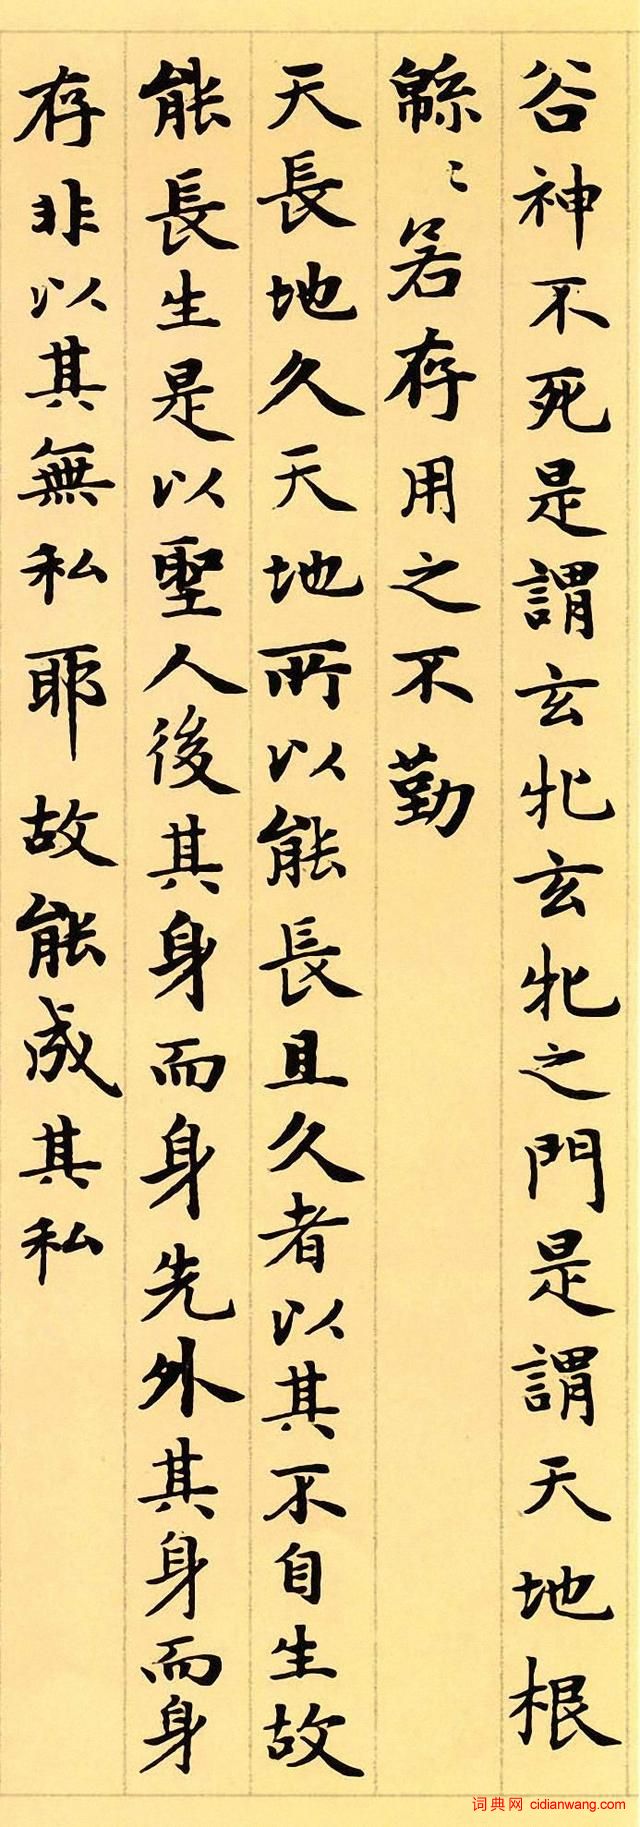 谷神不死是謂玄牝玄牝之門是謂天地根
緜〻若存用之不勤
天長地久天地所以能長且久者以其不自生故
能長生是以聖人後其身而身先外其身而身
存非以其無私耶故能成其私
词典网 cidianwang.com